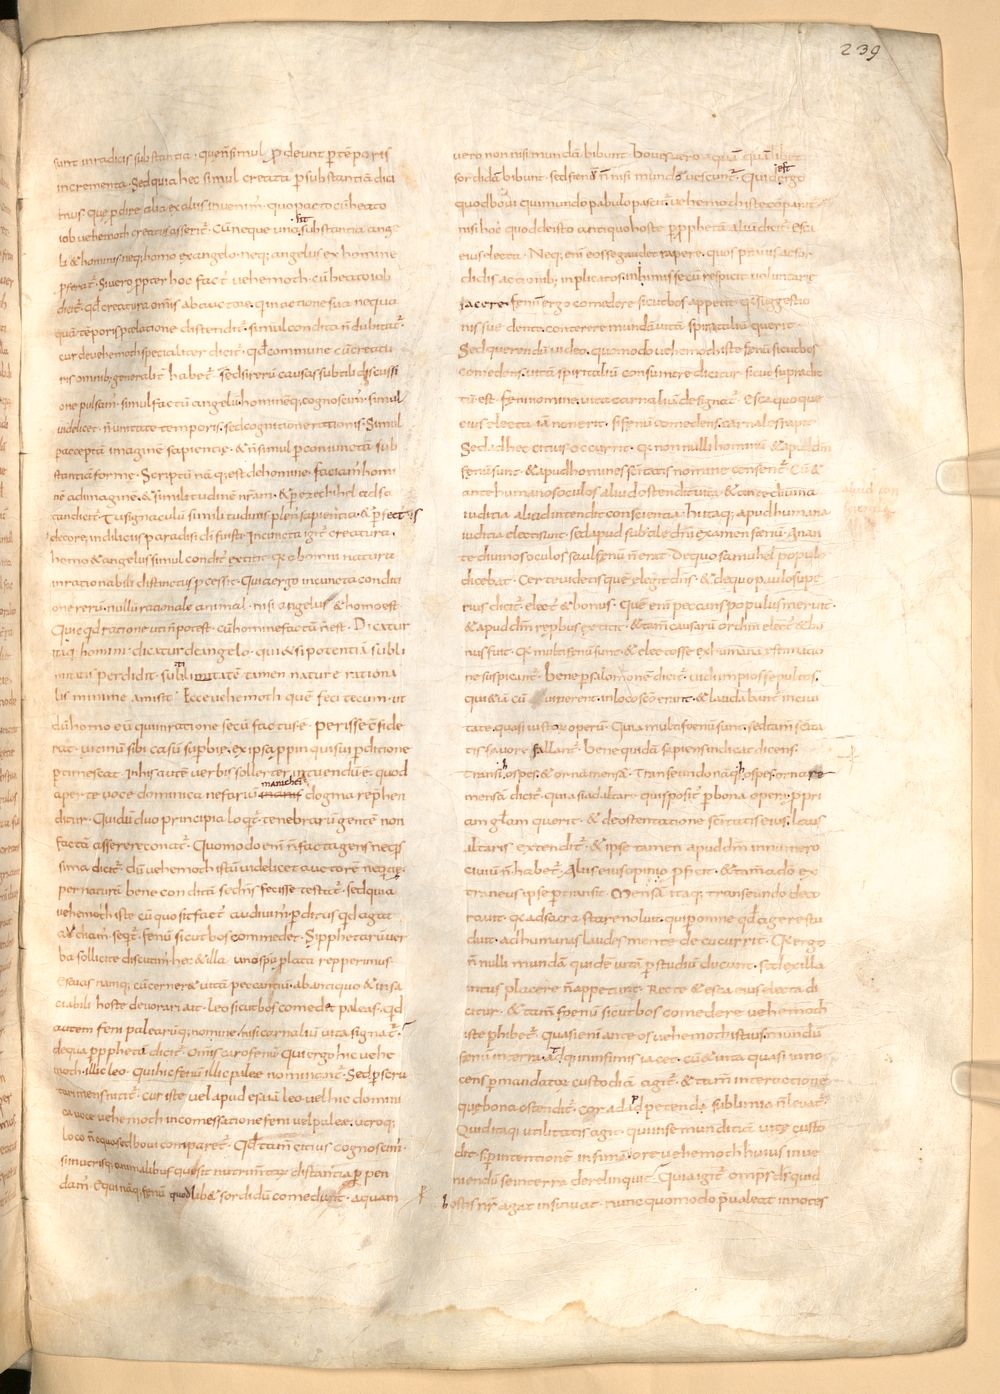 239
sunt in radicis substantia · queñ simul p̱deunt p̱ tẽporis
incrementa · Sed quia hec simul creata p̱ substantiã dici
mus que p̱ dire alia ex aliis invenim̃ · quo pacto cũ beato
iob vehemoth creatus asserit̃ · Cũ neque una sit substantia ange
li & hominis neq; homo ex angelo · neq; angelus ex homine
p̱ferat̃ · Si vero p̱pter hoc fact̃ vehemoth · cũ beato iob
dicit̃ · qđ creatura om̃is ab auctore · qui in actione sua nequa
quã tẽporis p̱telatione distendit̃ · simul condita ñ dubitat̃ ·
cur de vehemoth specialiter dicit̃ · qđ commune cũ creatu
ris omnib; generalit̃ habet̃ · Sed si rerũ causas subtili discussi
one pulsam̃ · simul factũ angelũ hominẽq; cognoscim̃ · simul
videlicet · ñ unitate temporis · sed cognitione rationis · Simul
p̱ acceptã imaginẽ sapientie · & ñ simul p̱ coniunctã sub
stantiã forme · Scriptũ nã q; est de homine · faciam̃ homi
nẽ ad imaginẽ & similitudinẽ nr̃am · & p̱ ezechihel ad sa
tan dicit̃ · Tu signaculũ similitudinis plen̄ sapientia · & p̱fectus
decore · in deliciis paradisi di fuisti · In cuncta igit̃ creatura ·
homo & angelus simul condit̃ extitit · q̃ ab omni natura
inrationabili distinctus p̱cessit · Quia ergo in cuncta conditi
one rerũ · nullũ rationale animal · nisi angelus & homo est
Quicqđ ratione uti ñ potest · cũ homine factũ ñ est · Dicatur
itaq; homini · dicatur de angelo · qui & si potentiã subli
mitatis perdidit · sublimitatẽ tamen nature rationa
lis minime amisit · Ecce vehemoth quẽ feci tecum · ut
dũ homo eũ qui in ratione secũ factus · e · perisse c̃side
rat · vicinũ sibi casũ superbie · ex ipsa p̱pinqui sui p̱ditione
p̱timescat · In his autẽ verbis sollerter intuendũ · e · quod
aperte voce dominica nefariũ manichei dogma rephen
ditur · Qui dũ duo principia loqt̃ · tenebrarũ gentẽ non
factã asserere conat̃ · Quomodo eni ñ facta gens neqis
sima dicit̃ · dũ vehemoth istũ videlicet auctorẽ nequitie
per naturã bene conditã se dñs fecisse testat̃ · Sed quia
vehemoth iste cũ quo sit fact̃ audivim̃ · p̱ditus qđ agat
audiam̃ · seqt̃ · fenũ sicut bos commedet · Si p̱phetarũ ver
ba sollicite discutim̃ · hec & illa uno sp̃u p̱lata repperimus
Esaias nanq; cũ cerneret vitã peccantiũ · ab antiquo & insa
ciabili hoste devorari ait · leo sicut bos comedet paleas · qđ
autem feni palearũq; nomine nisi carnaliũ vita signat̃ ·
de qua p̱ p̱phetã dicit̃ · Om̃is caro fenũ · Qui ergo hic vehe
moth · illic leo · Qui hic fenũ illic palee nominant̃ · Sed p̱scru
tari mens nitit̃ · cur iste vel apud esaiã leo vel hic domini
ca voce vehemoth in comessatione feni vel palee · utroq;
loco ñ equo sed bovi comparet̃ · Qđ tam̃ citius cognoscim̃ ·
si in utrisq; animalibus que sit nutrim̃torũ distantia p̱pen
dam̃ · Equi nãq; fenũ quodlib& sordidũ comedunt · aquam
vero non nisi mundã bibunt · boves vero aquã quã libet
sordidã bibunt · sed fenũ ñ nisi mundũ vescunt̃ · Quid est ergo
quod bovi qui mundo pabulo pascit̃ · vehemoth iste cõparat̃ ·
nisi hoc quod de isto antiquo hoste p̱ p̱phetã alium dicit̃ · Esca
eius electa · Neq; eni eos se gaudet rapere · quos pravis ac sor
didis actionib; inplicatos in himis secũ respicit voluntarie
jacere · fenũ ergo comedere sicut bos appetit · q̃ suggestio
nis sue dente conterere mundã vitã spiritaliũ querit ·
Sed querendũ video · quomodo vehemoth iste fenũ sicut bos
comedens · vitã spiritaliũ consumere dicatur · sicut supra dic
tũ est · feni nomine vita carnaliũ designat̃ · Esca quoque
eius electa iã non erit · si fenũ comedens carnales rapit ·
Sed ad hec citius occurrit · q̃ non nulli hominũ & apud dm̃
fenũ sunt · & apud homines sc̃itatis nomine consent̃ · Cũ &
ante humanos oculos aliud ostendit vita · & ante divina
iudicia aliud intendit conscientia · hi itaq; apud humana
iudicia electi sunt · sed apud subtile dm̃i examen fenũ · An an
te divinos oculos saul fenũ ñ erat · De quo samuhel populo
dicebat · Certe videtis quẽ elegit dñs · & de quo paulo supe
rius dicit̃ · elect̃ & bonus · Quẽ eni peccans populus meruit ·
& apud dm̃ rep̱bus extitit · & tam̃ causarũ ordini elect̃ & bo
nus fuit · Q̃ multi fenũ sunt · & elec tos se ex humana estimatio
ne suspicunt̃ · bene p̱ salomonẽ dicit̃ · vidi impios sepultos ·
qui & iã cũ viverent · in loco sc̃o erant · & laudabant̃ in civi
tate · quasi iustorũ operũ · Quia multi foenũ sunt · sed tam̃ sc̃ita
tis favore fallant̃ · bene quidã sapiens indicat dicens ·
Transi hospes & orna mensã · Transeundo nãq; hospes ornare
mensã dicit̃ · quia si ad altare quis posit̃ p̱ bona opera p̱pri
am gl̃am querit · & de ostentatione sc̃itatis eius · laus
altaris extendit̃ · & ipse tamen apud dm̃ in numero
civiũ ñ habet̃ · Alius eius opinio p̱ficit · & tam̃ a dõ ex
traneus ipse p̱transit · Mensã itaq; transeundo deco
ravit · q̃ ad sacra stare noluit · qui p̱ omne qđ agere stu
duit · ad humanas laudes mente decucurrit · Q̃ ergo
ñ nulli mundam quidẽ vitã p̱ studiũ ducunt · sed ex illa
intus placere ñ appetunt · Recte & esca eius electa di
citur · & tam̃ foenũ sicut bos comedere vehemoth
iste p̱hibet̃ · Quasi eni ante os vehemoth istius · mundũ
fenũ in terra · vel qui in fimis iacet · cũ & vita quasi inno
cens p̱ mandatorũ custodiã agit̃ · & tam̃ inter actione
que bona ostendit̃ · cor ad adpetenda sublimia ñ levat̃ ·
Quid itaq; utilitatis agit · qui in se mundiciã vite custo
dit · si p̱ intentionẽ infimã · ore vehemoth huius inve
niendũ se in terra derelinquit · Quia igit̃ omp̃s dñs quid
hostis nr̃ agat insinuat · nunc quomodo p̃valeat innotes